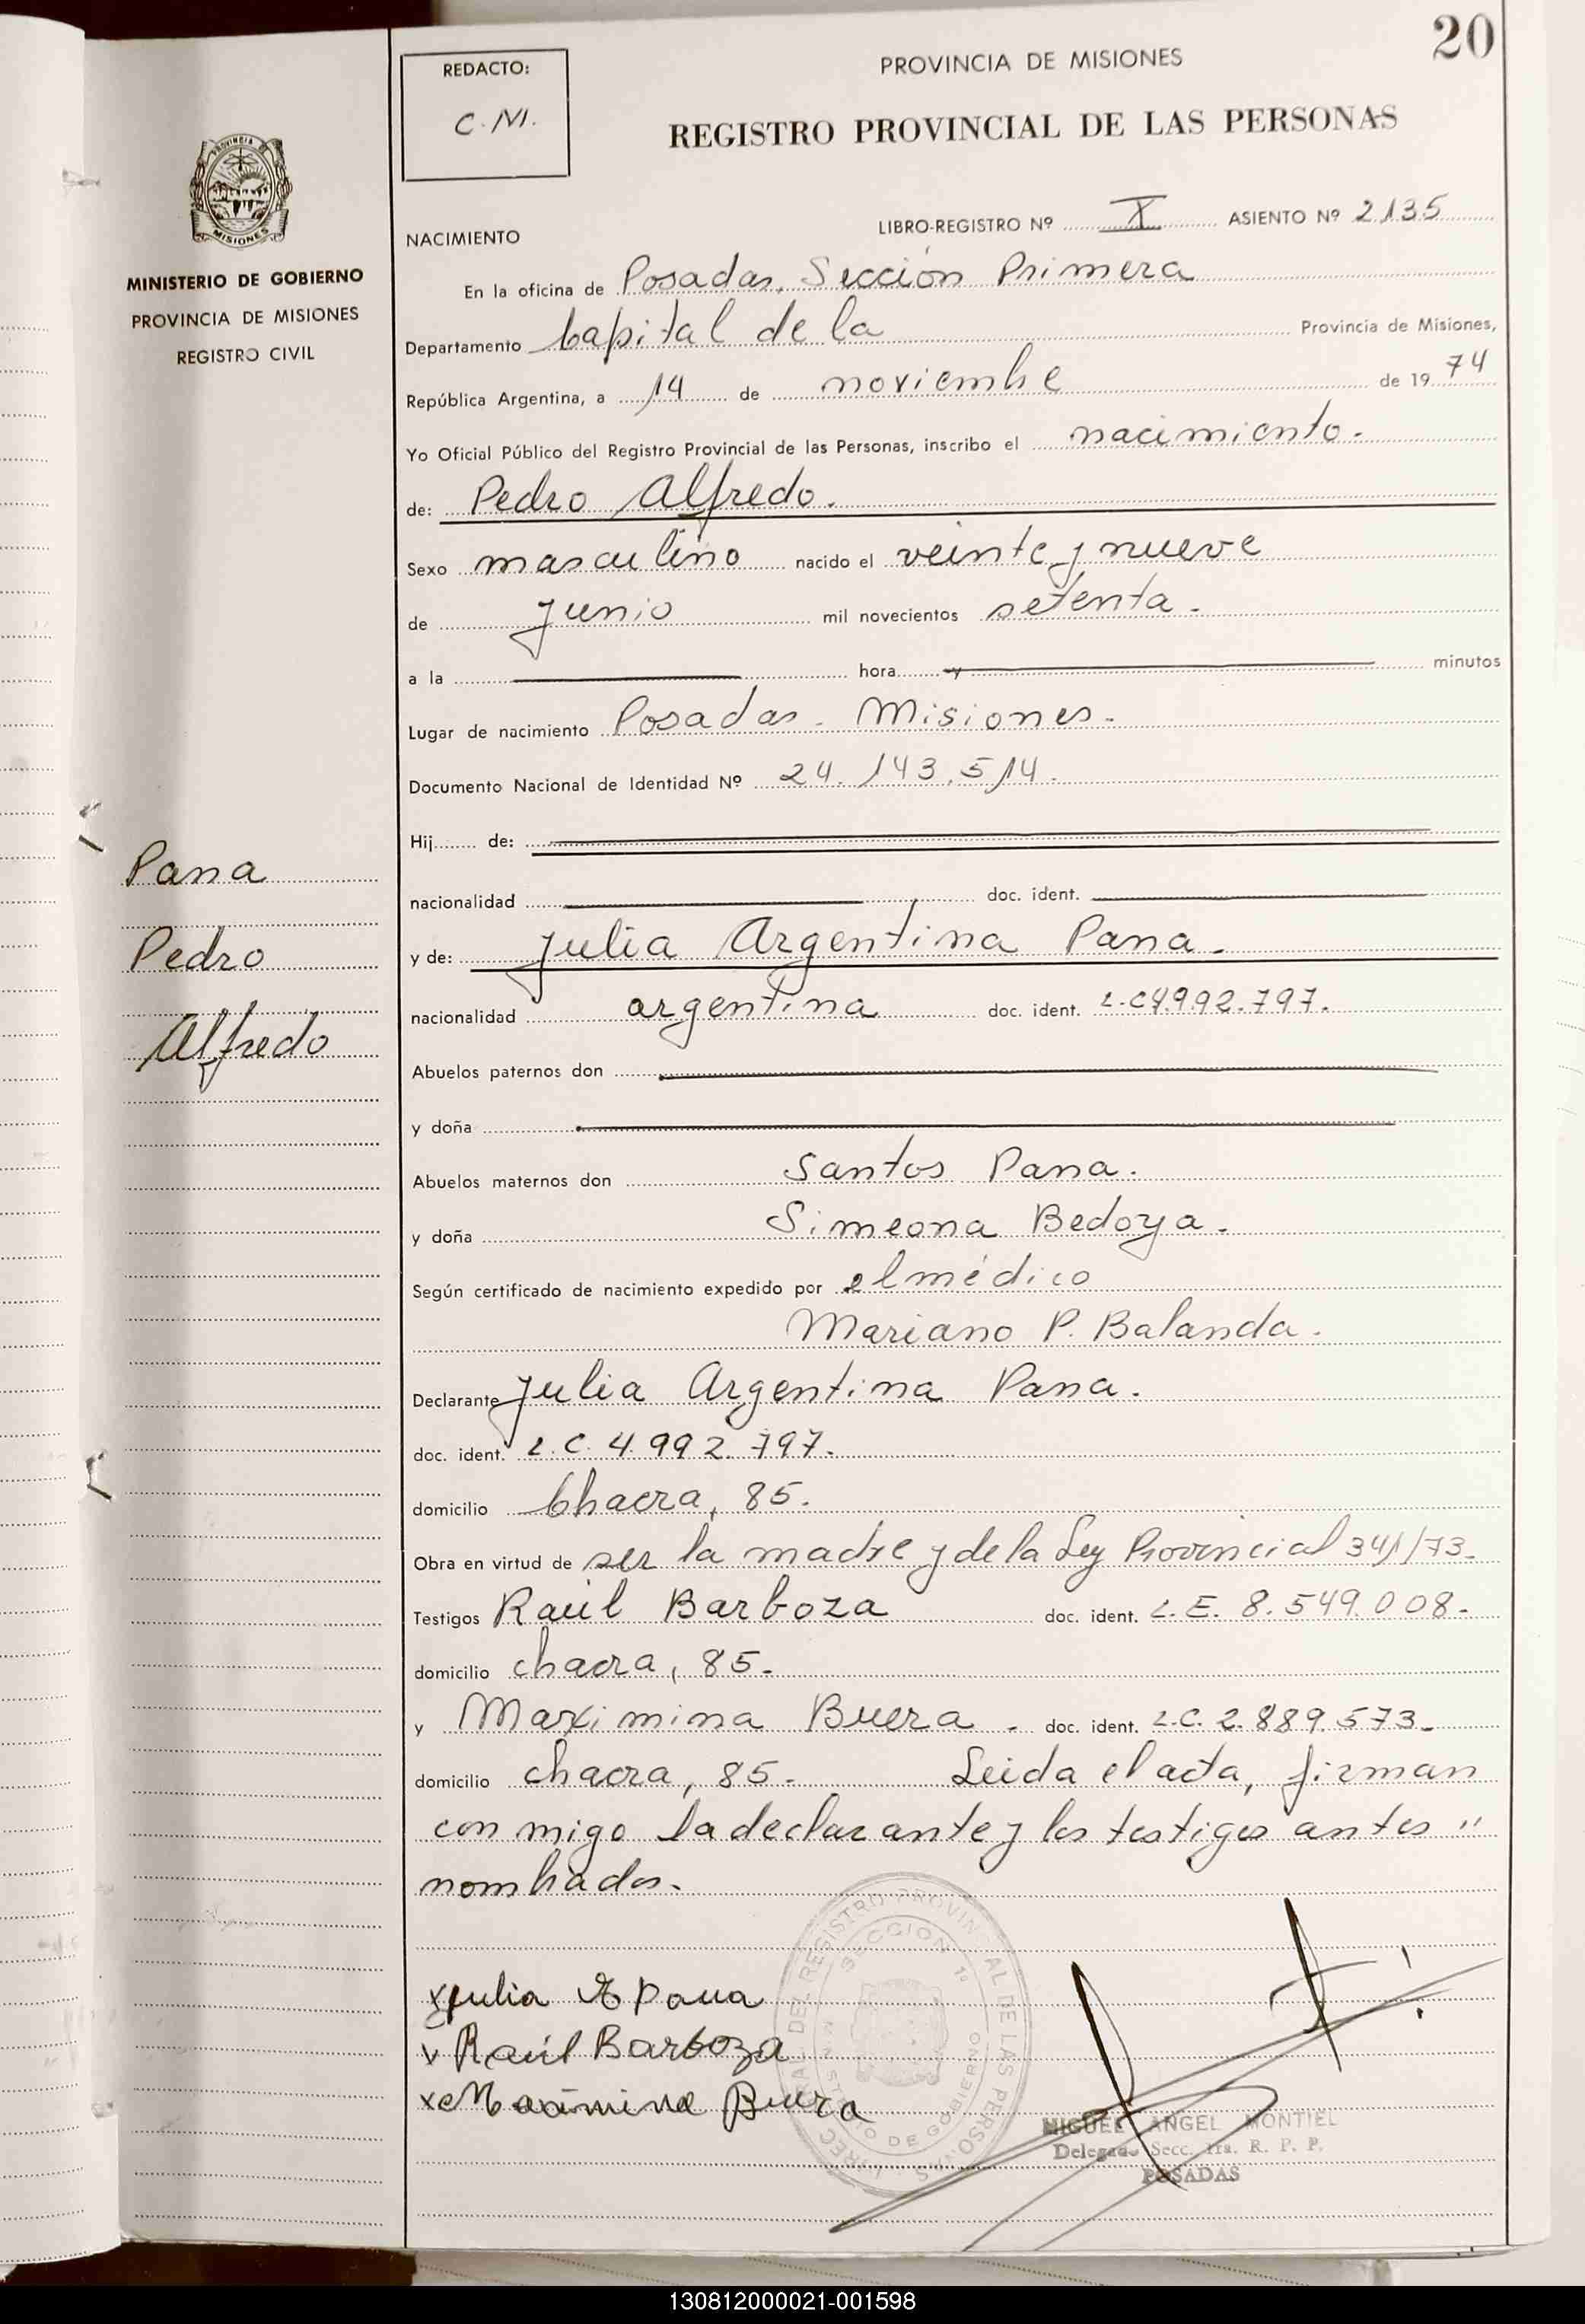 20
REDACTO:
C.M.
PROVINCIA DE MISIONES
REGISTRO PROVINCIAL DE LAS PERSONAS
MISIONES
MINISTERIO DE GOBIERNO
PROVINCIA DE MISIONES
REGISTRO CIVIL
LIBRO-REGISTRO Nº X ASIENTO Nº 2135
NACIMIENTO
En la oficina de Posadas, Sección Primera
Departamento Capital de la Provincia de Misiones,
República Argentina, a 14 de noviembre de 1974
Yo Oficial Público del Registro Provincial de las Personas, inscribo el nacimiento.
de: Pedro Alfredo.
Sexo masculino nacido el veinte y nueve
de Junio mil novecientos setenta.
a la hora y minutos
Lugar de nacimiento Posadas - Misiones.
Documento Nacional de Identidad Nº 24.143.514.
Hij de:
nacionalidad doc. ident.
y de: Julia Argentina Pana.
nacionalidad argentina doc. ident. L.C 4.992.797.
Abuelos paternos don
y doña
Abuelos maternos don Santos Pana.
y doña Simeona Bedoya.
Según certificado de nacimiento expedido por el médico
Mariano P. Balanda.
Declarante Julia Argentina Pana.
doc. ident. L.C. 4.992.797.
domicilio Chacra, 85.
Obra en virtud de ser la madre y de la Ley Provincial 341/73.
Testigos Raúl Barboza doc. ident. L.E. 8.549.008.
domicilio chacra, 85.
y Maximina Buera. doc. ident. L.C. 2.889.573.
domicilio chacra, 85. Leida el acta, firman
con migo la declarante y los testigos antes "
nombrados.
Pana
Pedro
Alfredo
x Julia A Pana
x Raúl Barboza
x Maximina Buera
SECCION 1ª
MIGUEL ANGEL MONTIEL
Delegado Secc. 1ra. R. P. P.
POSADAS
130812000021-001598